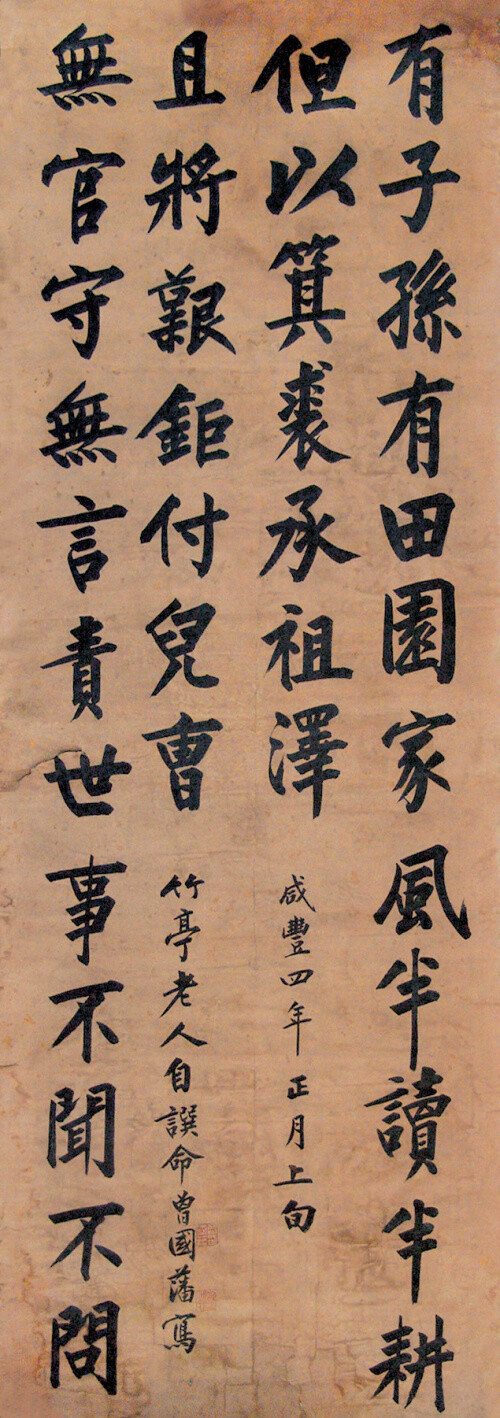 有子孫有田園家風半讀半耕
但以箕裘承祖澤
咸豐四年正月上旬
無官守無言責世事不聞不問
且將艱鉅付兒曹
竹亭老人自譔命曾國藩寫